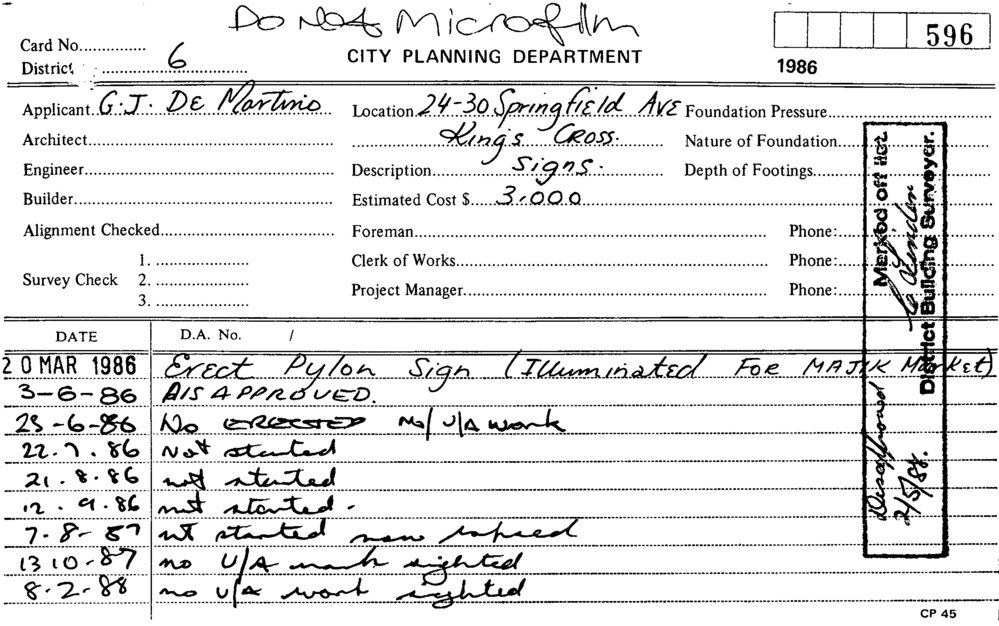 Do Not Microfilm
Card No.
CITY PLANNING DEPARTMENT
596
District 6
1986
Applicant G.J. De Martino
Location 24-30 Springfield Ave
Foundation Pressure
Architect
Kings Cross.
Nature of Foundation
Engineer
Description Signs.
Depth of Footings
Builder
Estimated Cost $ 3.000
Alignment Checked
Foreman
Phone:
1.
Clerk of Works
Phone:
Survey Check 2.
Project Manager
Phone:
3.
DATE D.A. No. /
20 MAR 1986 Erect Pylon Sign (Illuminated For MAJIK Market)
3-6-86 DISAPPROVED.
25-6-86 No ERECTED No/ U/A work
22.7.86 Not started
21.8.86 not started
12.9.86 not started.
7-8-87 not started now lapsed
13 10-87 no U/A work sighted
8.2.88 no U/A work sighted
Marked off
District Building Surveyor.
Disapproved
2/5/88.
CP 45